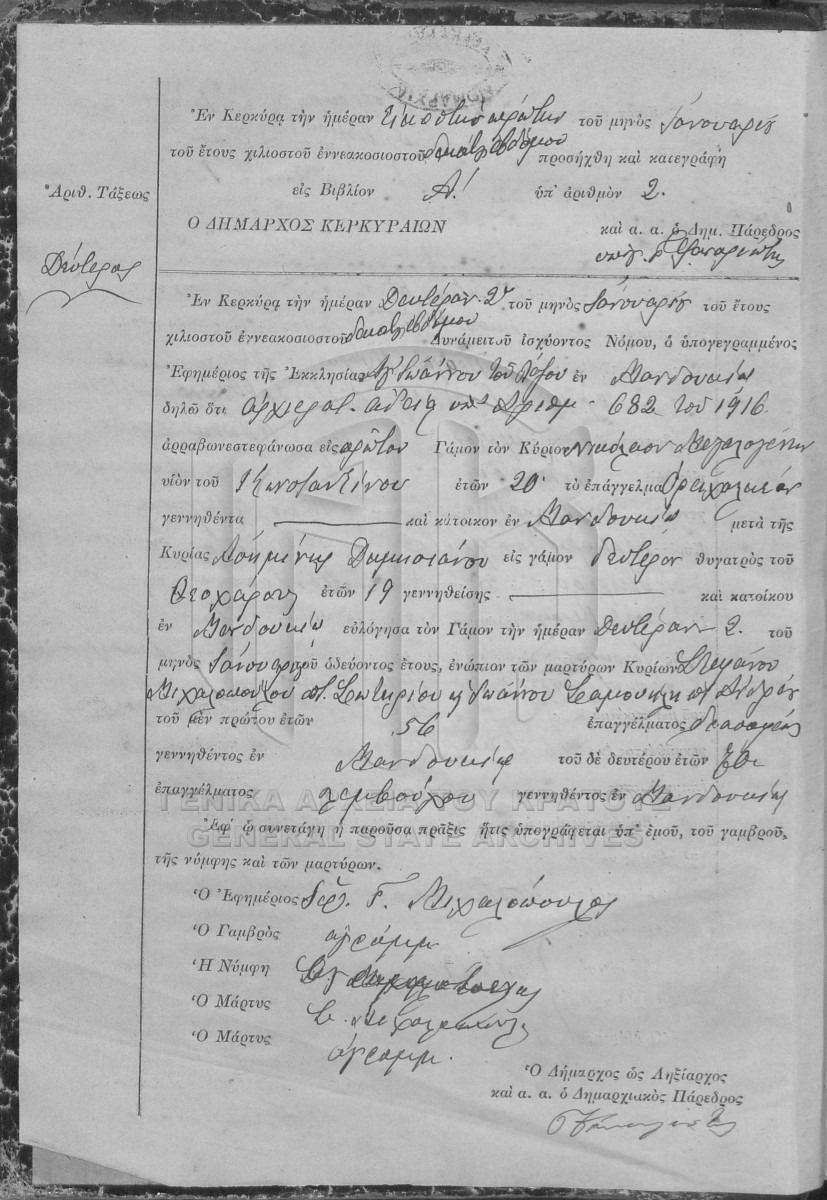 Ἐν Κερκύρᾳ τὴν ἡμέραν εἰκοστὴν πρώτην τοῦ μηνὸς Ἰανουαρίου
τοῦ ἔτους χιλιοστοῦ ἐννεακοσιοστοῦ δεκάτου ἑβδόμου προσήχθη καὶ κατεγράφη
εἰς Βιβλίον Α! ὑπ' ἀριθμὸν 2.
Ἀριθ. Τάξεως
Ο ΔΗΜΑΡΧΟΣ ΚΕΡΚΥΡΑΙΩΝ
καὶ α. α. ὁ Δημ. Πάρεδρος
Δεύτερος
Ἐν Κερκύρᾳ τὴν ἡμέραν Δευτέραν 2αν τοῦ μηνὸς Ἰανουαρίου τοῦ ἔτους
χιλιοστοῦ ἐννεακοσιοστοῦ δεκάτου ἑβδόμου Δυνάμει τοῦ ἰσχύοντος Νόμου, ὁ ὑπογεγραμμένος
Ἐφημέριος τῆς Ἐκκλησίας Ἁγ. Ἰωάννου τοῦ Λόφου ἐν Μανδουκίῳ
δηλῶ ὅτι ἀρχιερατ. ἀδείᾳ ὑπ' ἀριθμ. 682 τοῦ 1916
ἀρραβωνεστεφάνωσα εἰς πρῶτον Γάμον τὸν Κύριον Νικόλαον Μεγαλογένην
υἱὸν τοῦ Κωνσταντίνου ἐτῶν 20 τὸ ἐπάγγελμα
γεννηθέντα καὶ κάτοικον ἐν Μανδουκίῳ μετὰ τῆς
Κυρίας Ἀσημίνης Δαμασιάνου εἰς γάμον δεύτερον θυγατρὸς τοῦ
Θεοχάρους ἐτῶν 19 γεννηθείσης καὶ κατοίκου
ἐν Μανδουκίῳ εὐλόγησα τὸν Γάμον τὴν ἡμέραν Δευτέραν 2. τοῦ
μηνὸς Ἰανουαρίου τοῦ ὁδεύοντος ἔτους, ἐνώπιον τῶν μαρτύρων Κυρίων Στεφάνου
Μιχαλοπούλου π. Σωτηρίου κ' Ἰωάννου π. Ἀνδρέου
τοῦ μὲν πρώτου ἐτῶν 56 ἐπαγγέλματος
γεννηθέντος ἐν Μανδουκίῳ τοῦ δὲ δευτέρου ἐτῶν
ἐπαγγέλματος λεμβούχου γεννηθέντος ἐν Μανδουκίῳ
ΓΕΝΙΚΑ ΑΡΧΕΙΑ ΤΟΥ ΚΡΑΤΟΥΣ
Ἐφ' ᾧ συνετάγη ἡ παροῦσα πρᾶξις ἥτις ὑπογράφεται ὑπ' ἐμοῦ, τοῦ γαμβροῦ,
GENERAL STATE ARCHIVES
τῆς νύμφης καὶ τῶν μαρτύρων.
Ὁ Ἐφημέριος Ἱερ. Γ. Μιχαλόπουλος
Ὁ Γαμβρὸς ἀγράμμ.
Ἡ Νύμφη
Ὁ Μάρτυς Σ. Μιχαλόπουλος
Ὁ Μάρτυς ἀγράμμ.
Ὁ Δήμαρχος ὡς Ληξίαρχος
καὶ α. α. ὁ Δημαρχιακὸς Πάρεδρος